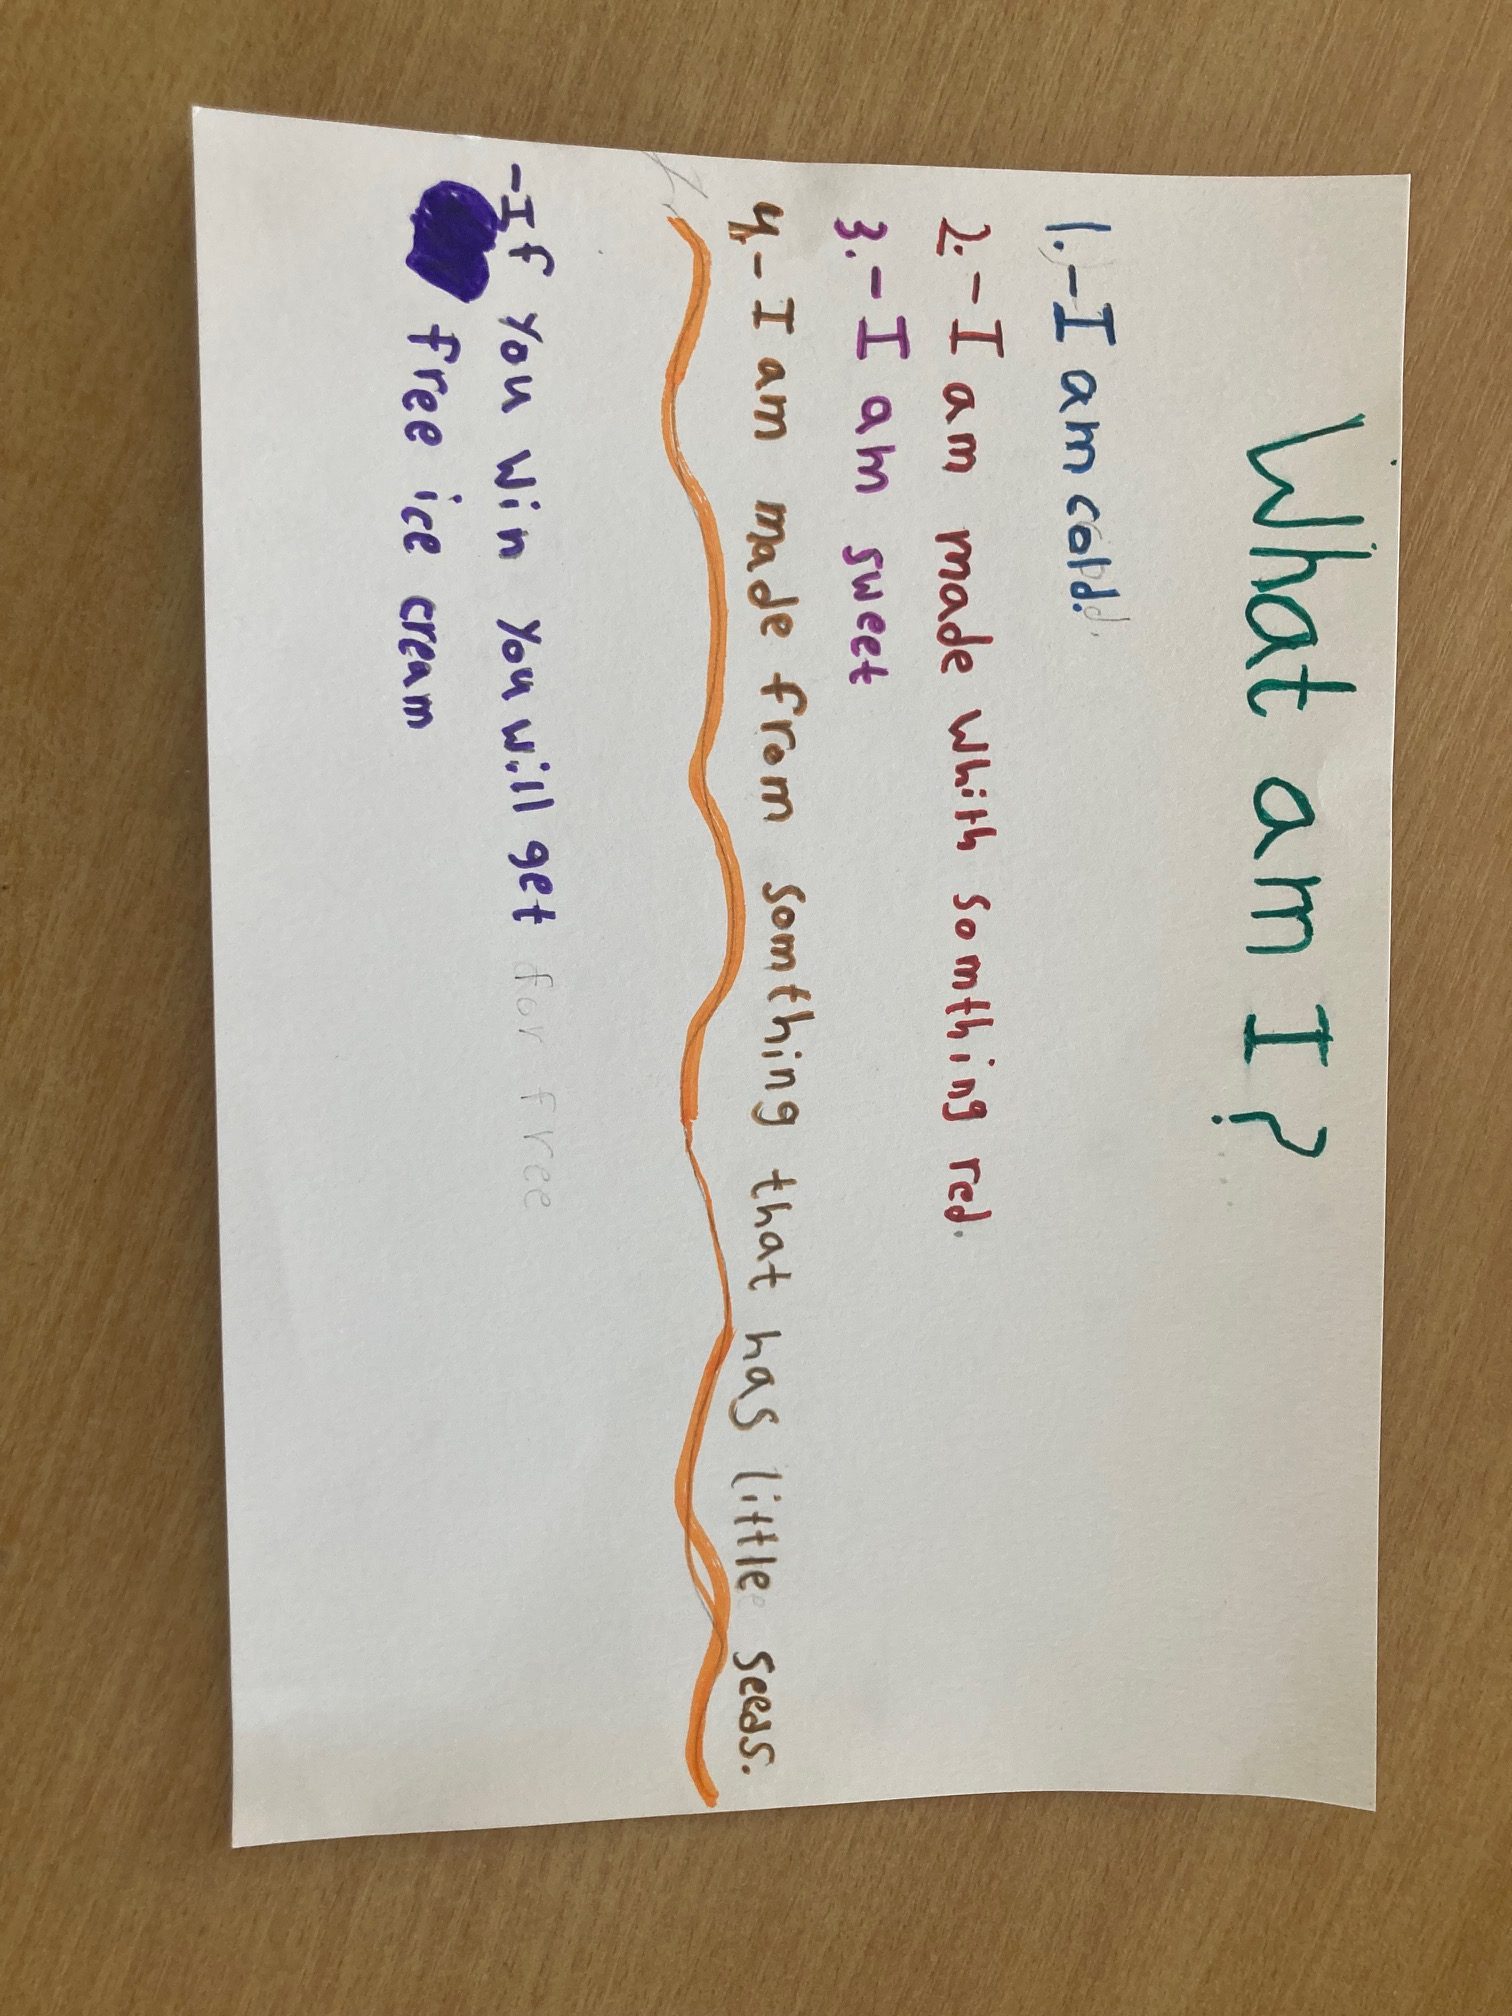 What am I?
1.-I am cold.
2.-I am made whith somthing red.
3.-I am sweet
4.-I am made from somthing that has little seeds.
-If you win you will get for free
free ice cream